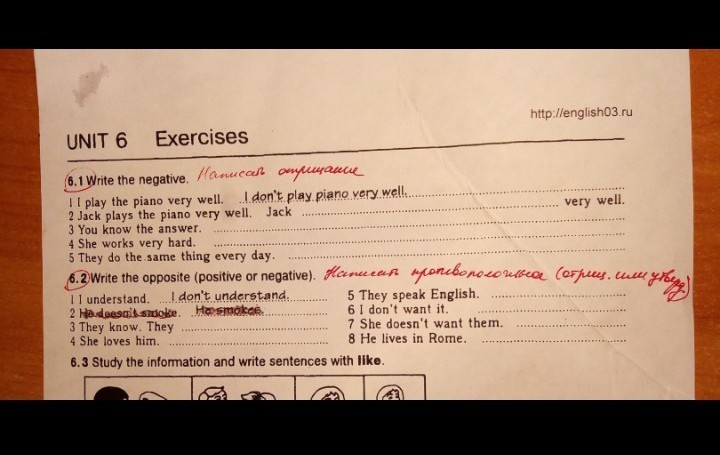 http://english03.ru
UNIT 6 Exercises
6.1 Write the negative. Написать отрицание
1 I play the piano very well. I don't play piano very well.
2 Jack plays the piano very well. Jack very well.
3 You know the answer.
4 She works very hard.
5 They do the same thing every day.
6.2 Write the opposite (positive or negative). Написать противоположное (отриц. или утверд)
1 I understand. I don't understand.
2 He doesn't smoke. He smokes.
3 They know. They
4 She loves him.
5 They speak English.
6 I don't want it.
7 She doesn't want them.
8 He lives in Rome.
6.3 Study the information and write sentences with like.